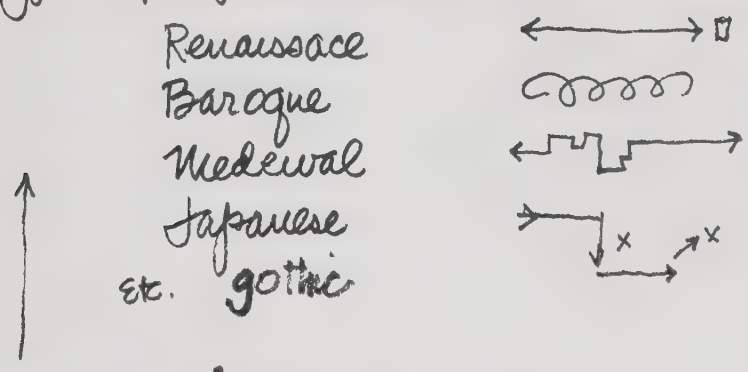 Renaissace
Baroque
Medieval
Japanese
Etc. gothic
x
x